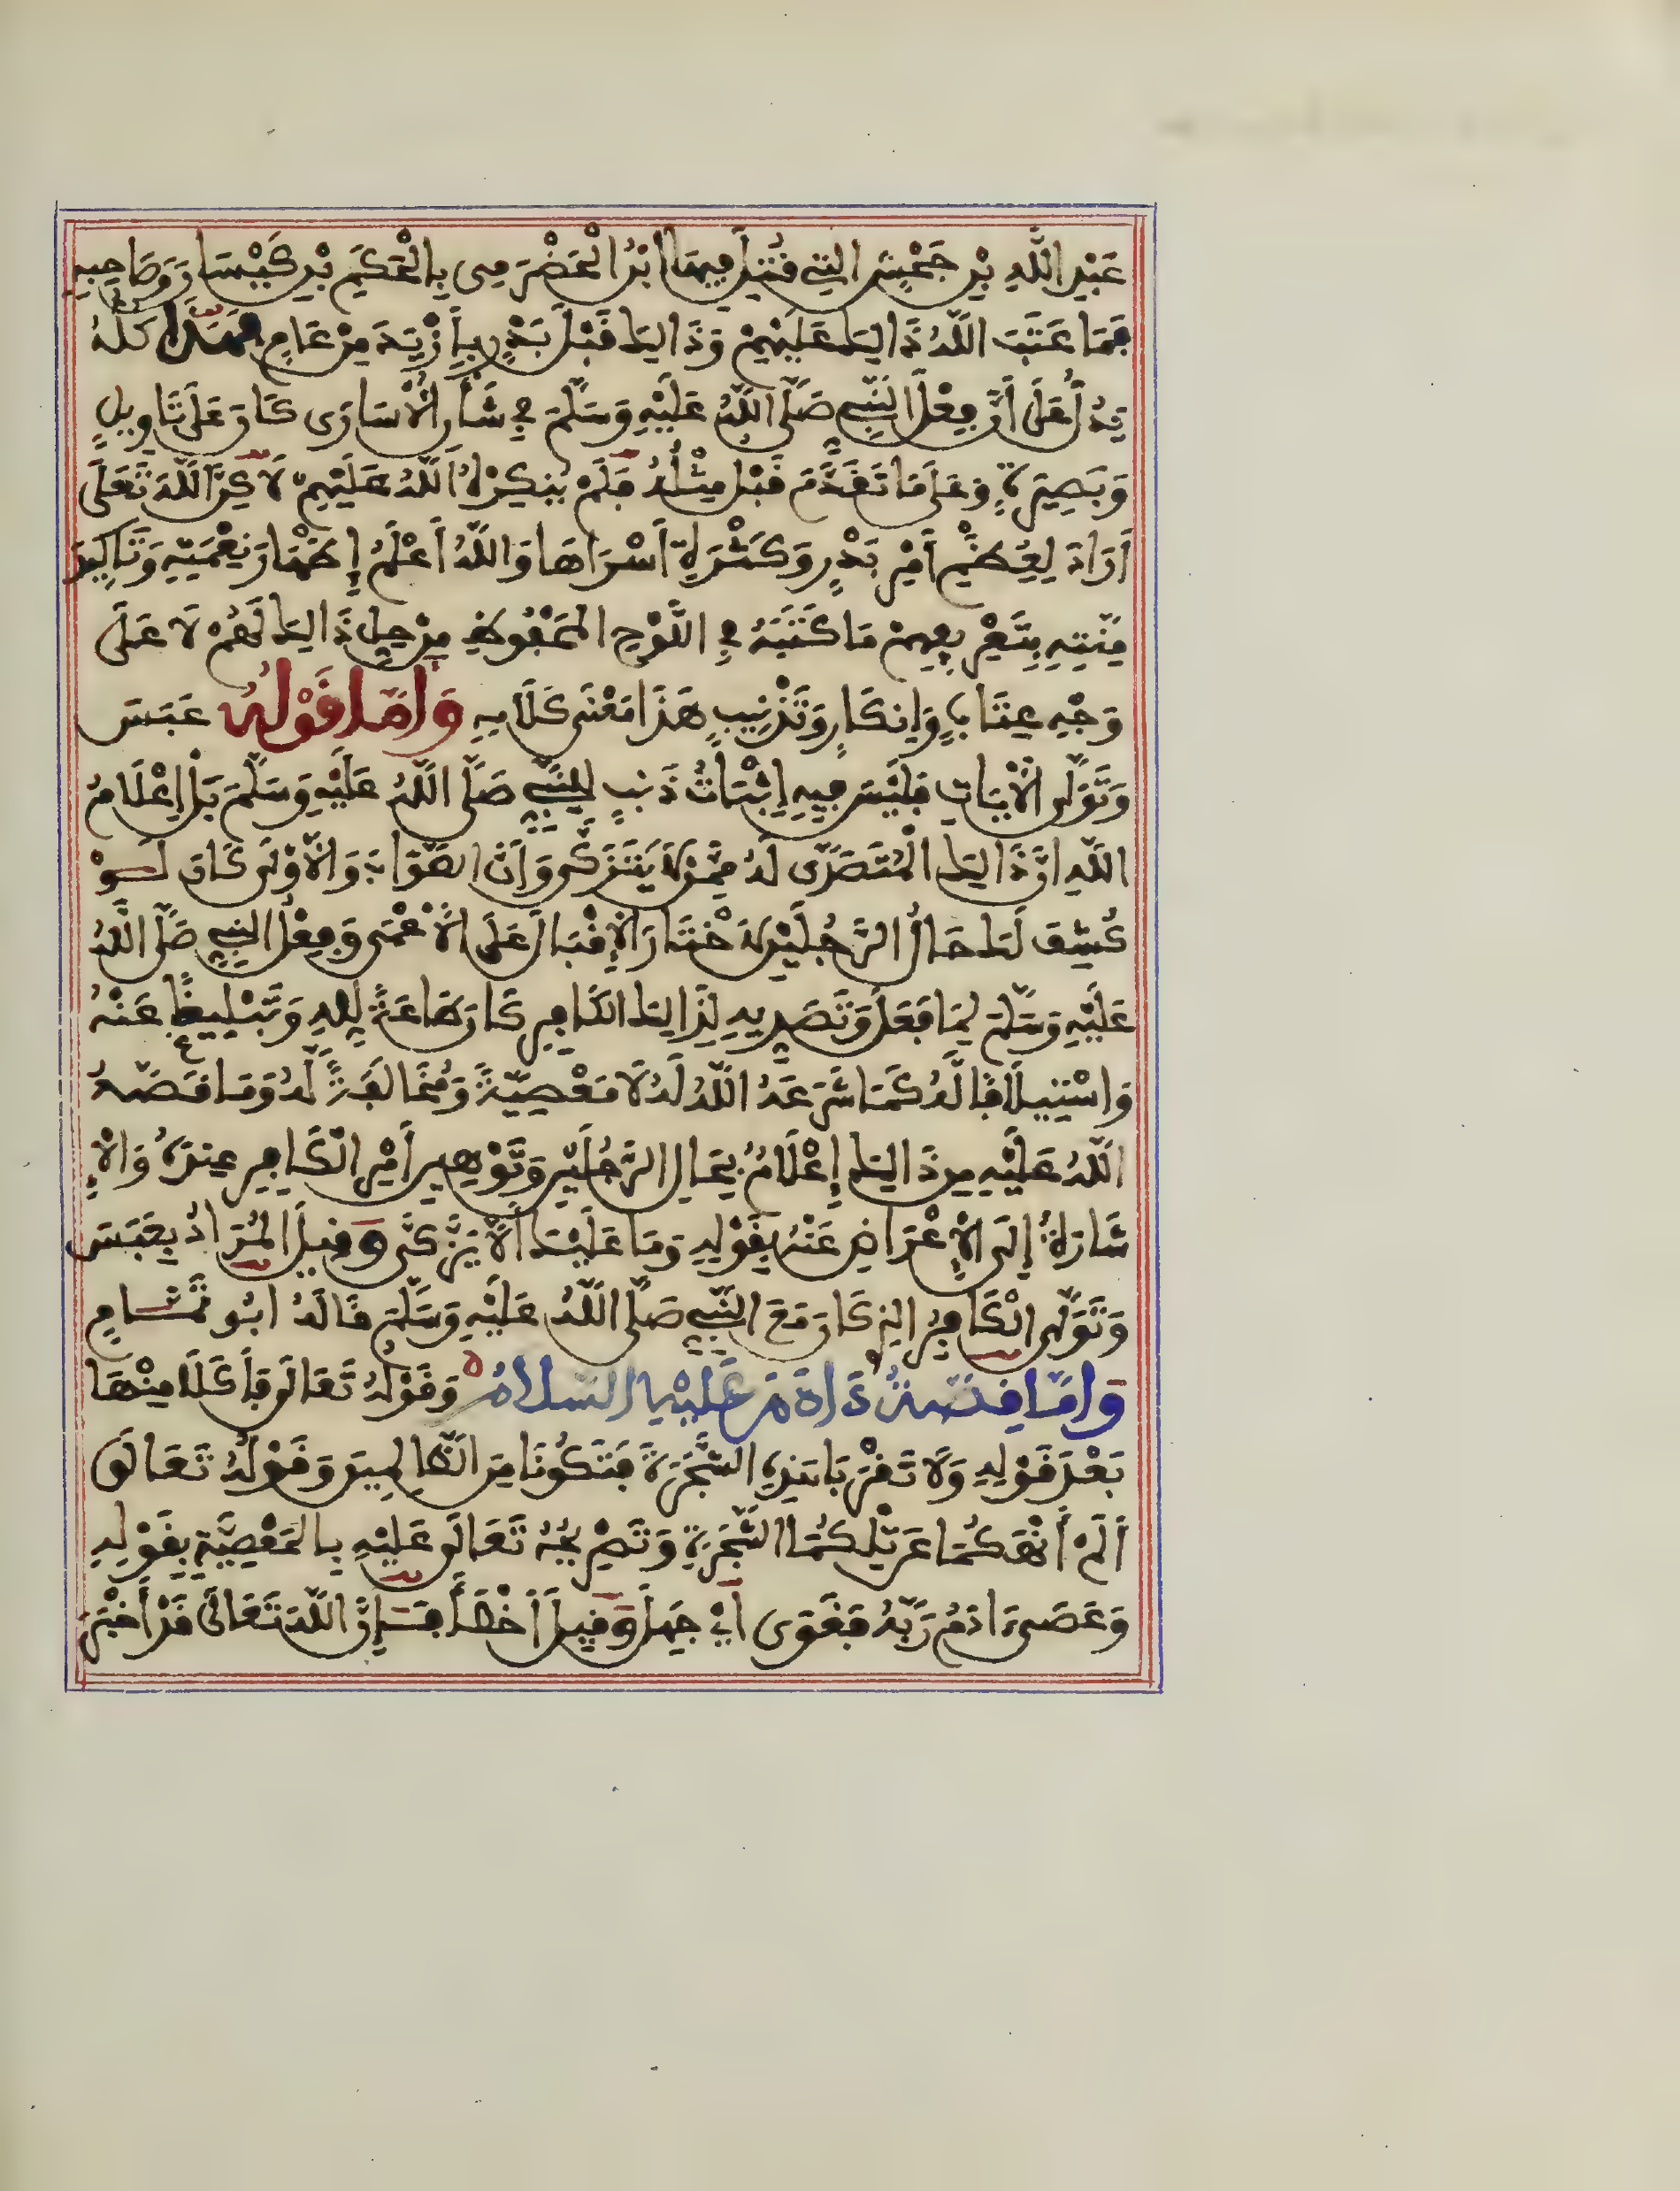 عَبْدِ اللَّهِ بْنِ جَحْشٍ التِي قُتِلَ فِيهَا ابْنُ الْحَضْرَمِي بِالْحَكَمِ بْنِ كَيْسَانَ وَصَاحِبِهِ
فَمَا عَتَبَ اللَّهُ ذَالِكَ عَلَيْهِمْ وَذَالِكَ قَبْلَ بَدْرٍ بِأَزْيَدَ مِنْ عَامٍ فَهَذَا كُلُّهُ
يَدُلُّ عَلَى أَنَّ فِعْلَ النَّبِيِّ صَلَّى اللَّهُ عَلَيْهِ وَسَلَّمَ فِي شَأْنِ الْأُسَارَى كَانَ عَلَى تَاوِيلٍ
وَبَصِيرَةٍ وَعَلَى مَا تَقَدَّمَ قَبْلُ مِثْلُهُ فَلَمْ يُنْكِرْهُ اللَّهُ عَلَيْهِمْ لَاكِنَّ اللَّهَ تَعَلَى
أَرَادَ لِعِظَمِ أَمْرِ بَدْرٍ وَكَثْرَةِ أَسْرَاهَا وَاللَّهُ أَعْلَمُ إِظْهَارَ نِعْمَتِهِ وَتَاكِيدَ
مِنَّتِهِ بِتَعْرِيفِهِمْ مَا كَتَبَهُ فِي اللَّوْحِ الْمَحْفُوظِ مِنْ حِلِّ ذَالِكَ لَهُمْ لَا عَلَى
وَجْهِ عِتَابٍ وَإِنكَارٍ وَتَذْنِيبٍ هَذَا مَعْنَى كَلَامِهِ وَأَمَّا قَوْلُهُ عَبَسَ
وَتَوَلَّى الْأَيَاتِ فَلَيْسَ فِيهِ إِثْبَاتُ ذَنبٍ لِلنَّبِيِّ صَلَّى اللَّهُ عَلَيْهِ وَسَلَّمَ بَلْ إِعْلَامُ
اللَّهِ أَنَّ ذَالِكَ الْمُتَصَدَّى لَهُ مِمَّنْ لَا يَتَزَكَّى وَأَنَّ الصَّوَابَ وَالْأَوْلَى كَانَ لَوْ
كُشِفَ لَكَ حَالُ الرَّجُلَيْنِ لَاخْتَارَ الْإِقْبَالَ عَلَى الْأَعْمَى وَفِعْلُ النَّبِيِّ صَلَّى اللَّهُ
عَلَيْهِ وَسَلَّمَ لِمَا فَعَلَ وَتَصَدِّيهِ لِذَالِكَ الْكَافِرِ كَانَ طَاعَةً لِلَّهِ وَتَبْلِيغًا عَنْهُ
وَاسْتِيلَافًا لَهُ كَمَا شَرَعَهُ اللَّهُ لَهُ لَا مَعْصِيَةً وَمُخَالَفَةً لَهُ وَمَا قَصَّهُ
اللَّهُ عَلَيْهِ مِن ذَالِكَ إِعْلَامُ بِحَالِ الرَّجُلَيْنِ وَتَوْهِينِ أَمْرِ الْكَافِرِ عِندَهُ وَالْإِ
شَارَةُ إِلَى الْإِعْرَاضِ عَنْهُ بِقَوْلِهِ وَمَا عَلَيْكَ أَلَّا يَزَّكَّى وَقِيلَ الْمُرَادُ بِعَبَسَ
وَتَوَلَّى الْكَافِرُ الذِي كَانَ مَعَ النَّبِيِّ صَلَّى اللَّهُ عَلَيْهِ وَسَلَّمَ قَالَهُ أَبُو تَمَّامٍ
وَأَمَّا قِصَّةُ ءَادَمَ عَلَيْهِ السَّلَامُ وَقَوْلُهُ تَعَالَى فَأَكَلَا مِنْهَا
بَعْدَ قَوْلِهِ وَلَا تَقْرَبَا هَذِهِ الشَّجَرَةَ فَتَكُونَا مِنَ الظَّالِمِينَ وَقَوْلُهُ تَعَالَى
أَلَمْ أَنْهَكُمَا عَن تِلْكُمَا الشَّجَرَةِ وَتَصْرِيحُهُ تَعَالَى عَلَيْهِ بِالْمَعْصِيَةِ بِقَوْلِهِ
وَعَصَى ءَادَمُ رَبَّهُ فَغَوَى أَيْ جَهِلَ وَقِيلَ أَخْطَأَ فَإِنَّ اللَّهَ تَعَالَى قَدْ أَخْبَرَ